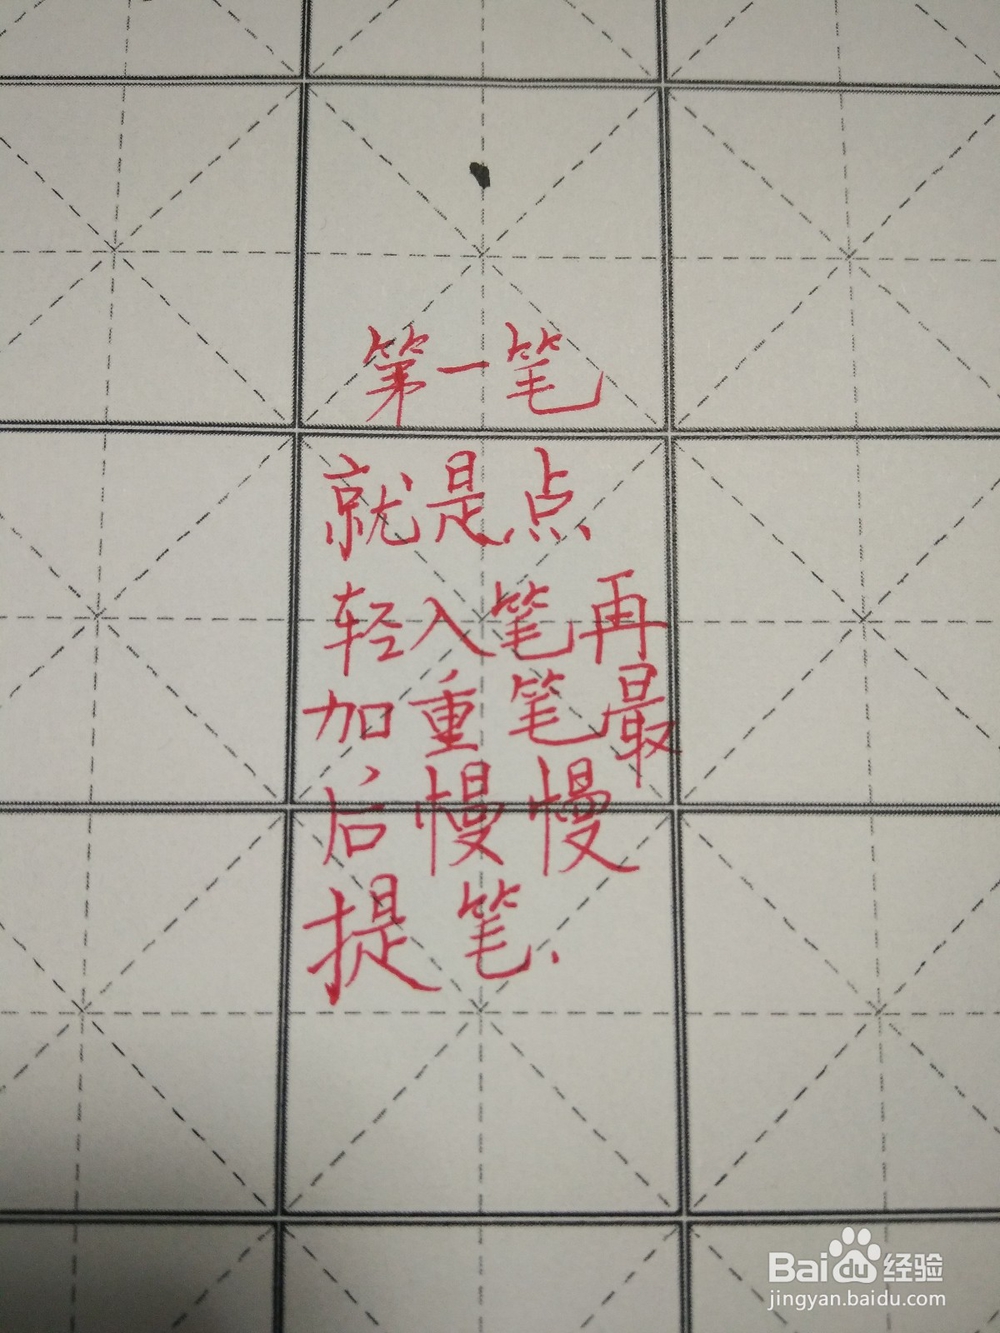 第一笔
就是点
轻入笔再
加重笔最
后慢慢
提笔.
Baidu经验
jingyan.baidu.com